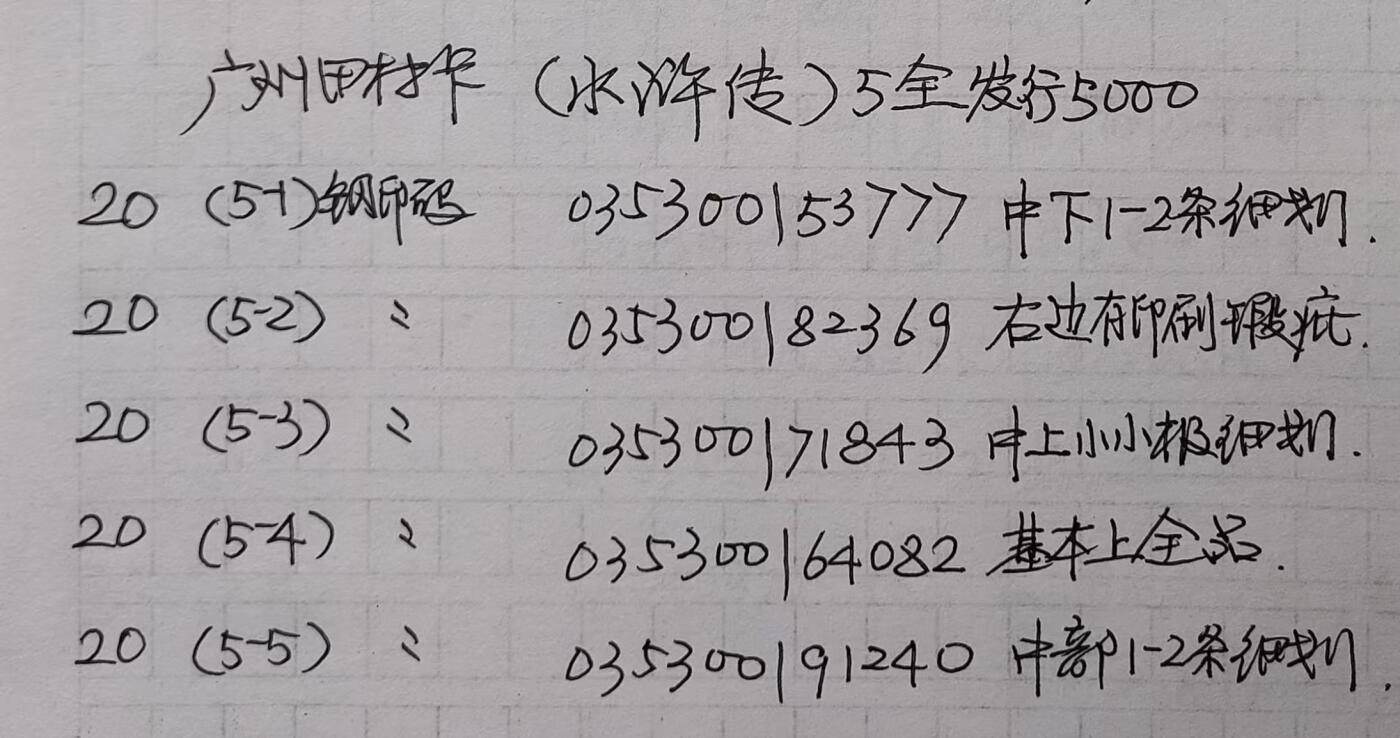 广州田村卡（水浒传）5全发行5000
20 (5-1)钢印码 035300153777 中下1-2条细划.
20 (5-2) 〃 035300182369 右边有印刷瑕疵.
20 (5-3) 〃 035300171843 中上小小极细划.
20 (5-4) 〃 035300164082 基本上全品.
20 (5-5) 〃 035300191240 中部1-2条细划.